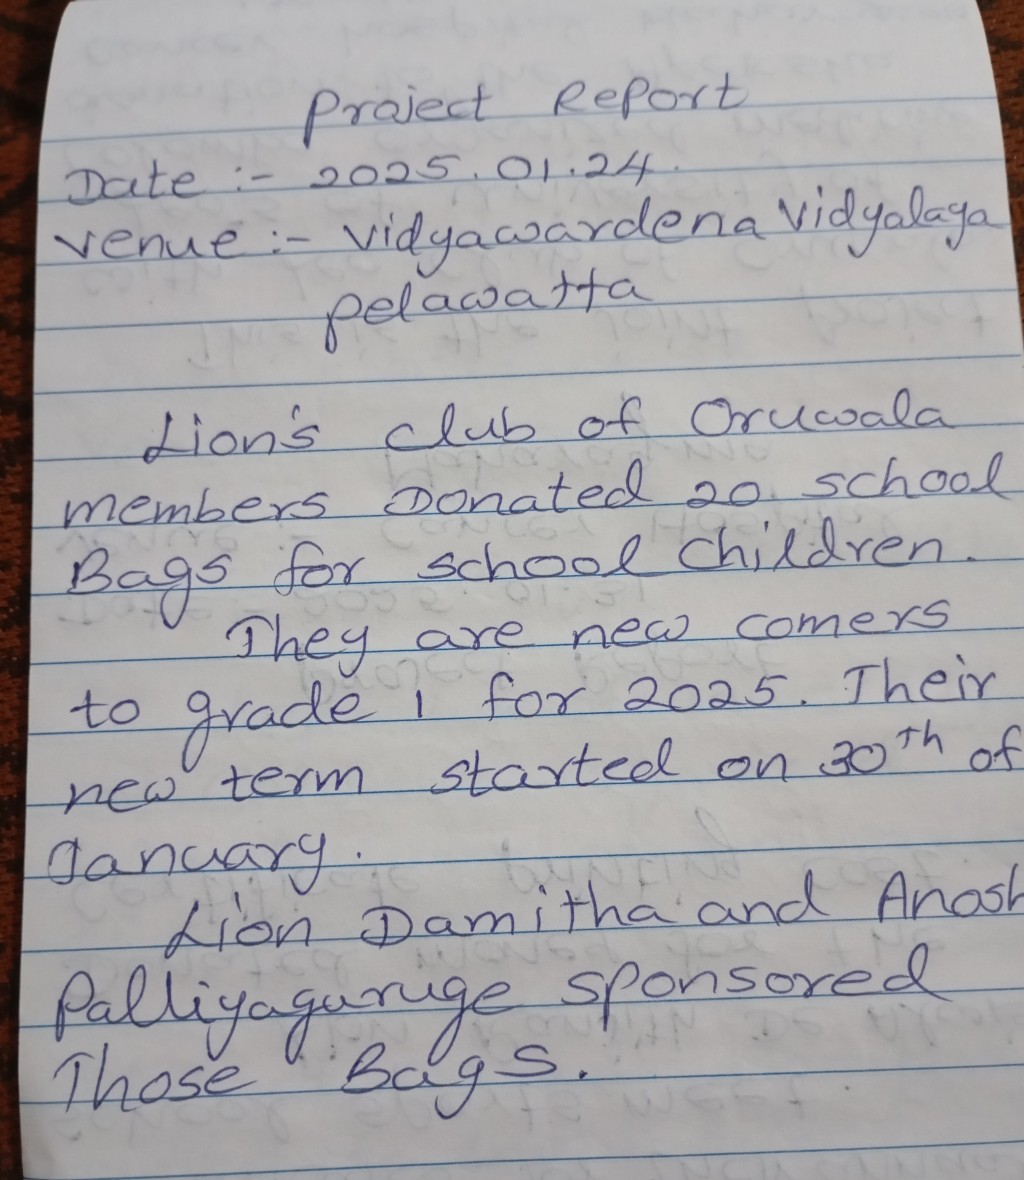 Project Report
Date :- 2025.01.24.
venue :- Vidyawardena Vidyalaya
pelawatta
Lion's club of Oruwala
members Donated 20 school
Bags for school children.
They are new comers
to grade 1 for 2025. Their
new term started on 30th of
January.
Lion Damitha and Anosh
Palliyaguruge sponsored
Those Bags.